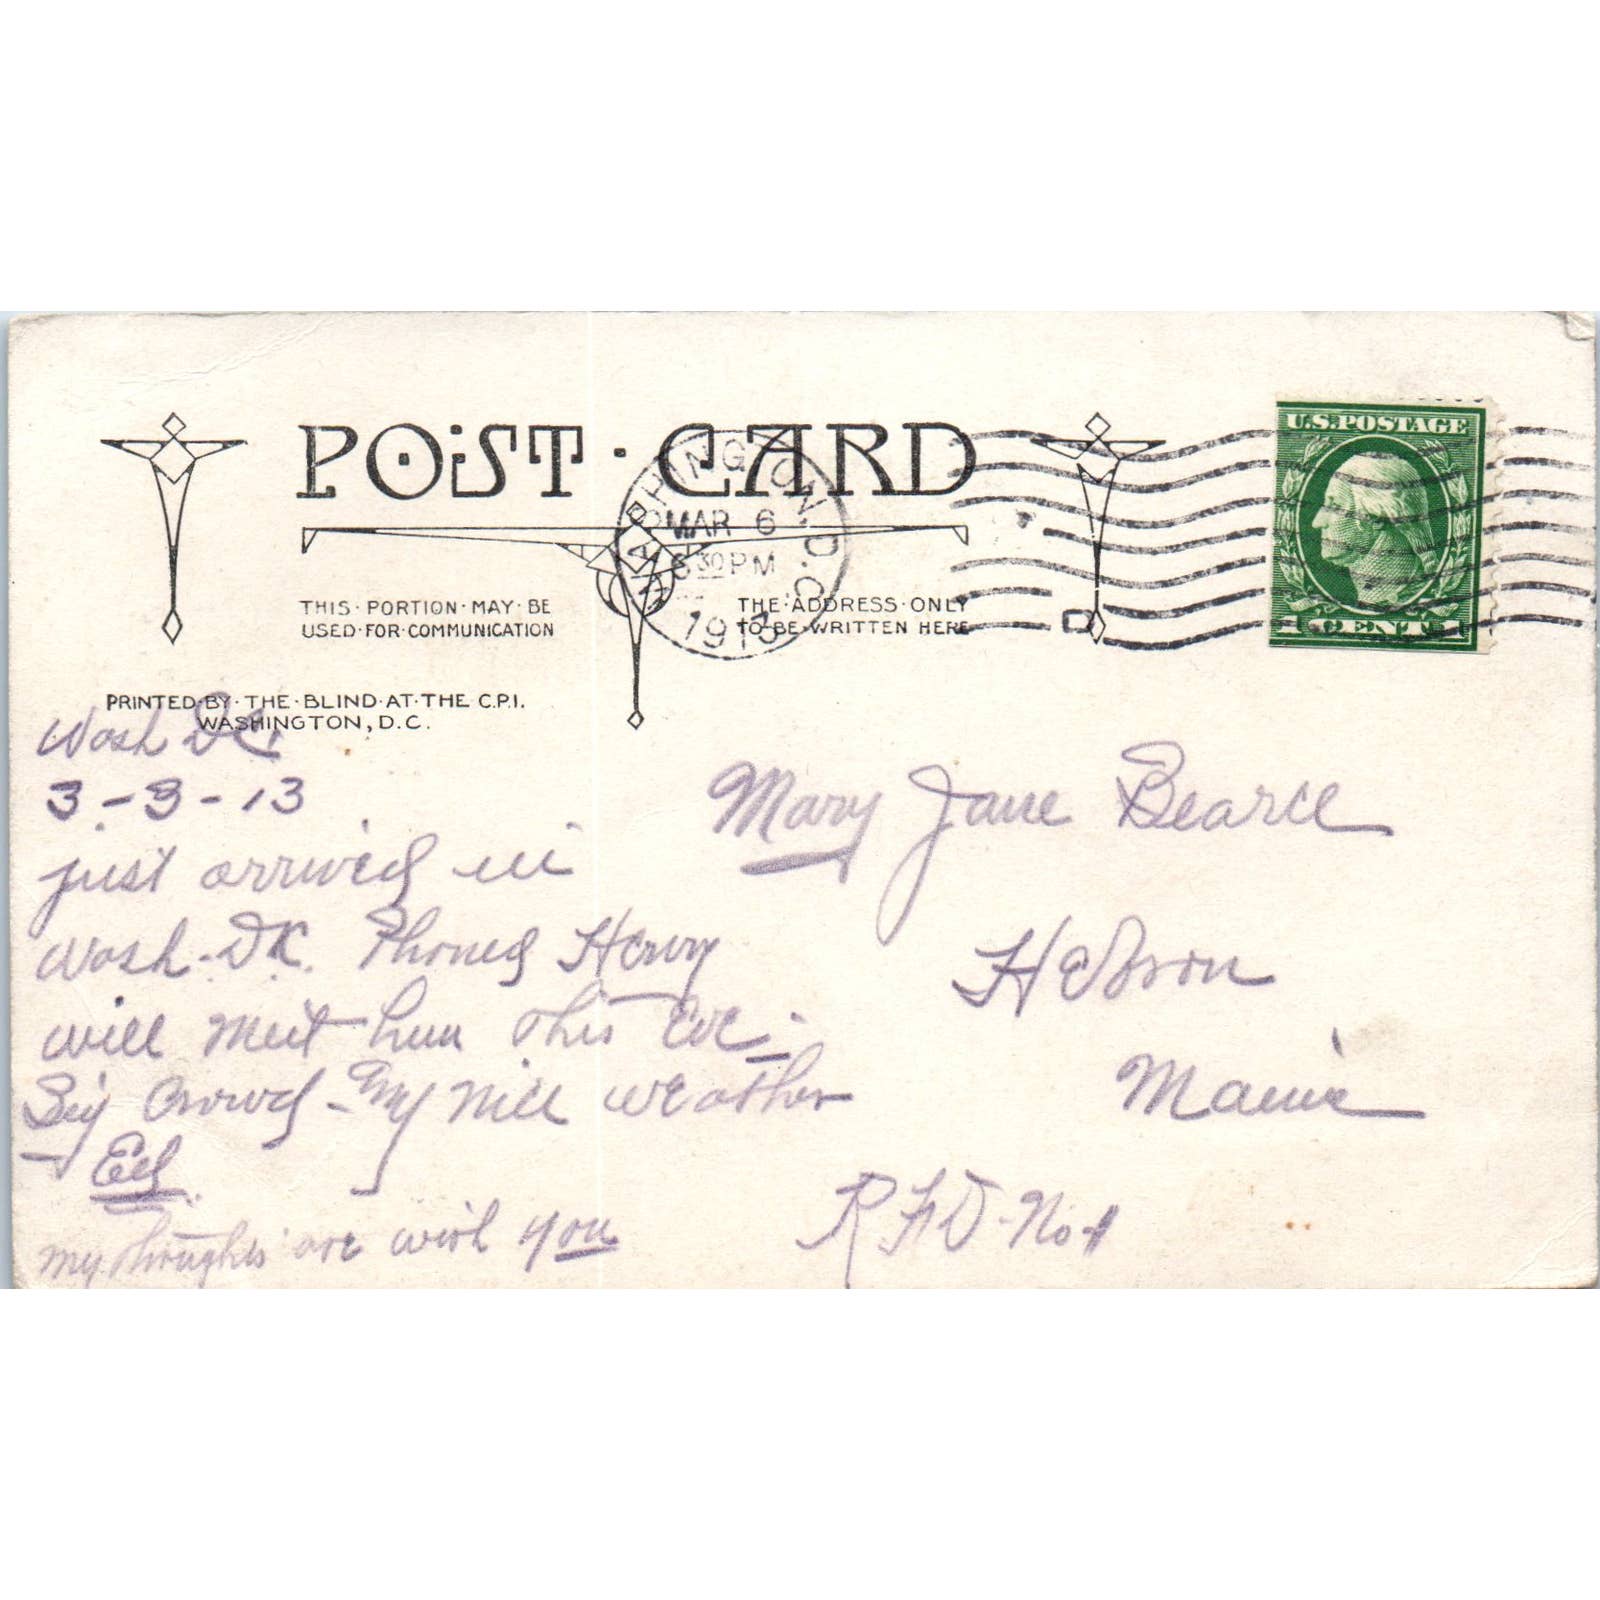 POST · CARD
WASHINGTON, D.C.
MAR 6
30 PM
1913
U.S. POSTAGE
1 CENT 1
THIS · PORTION · MAY · BE
USED · FOR · COMMUNICATION
THE · ADDRESS · ONLY
TO · BE · WRITTEN HERE
PRINTED · BY · THE · BLIND · AT · THE C.P.I.
WASHINGTON, D.C.
Wash DC
3-3-13
just arrived in
Wash. DC. Phoned Henry
will meet him this Eve -
Big Crowd - My nice weather
Ed
my thoughts are with you
Mary Jane Bearce
Hebron
Maine
RFD - No 1